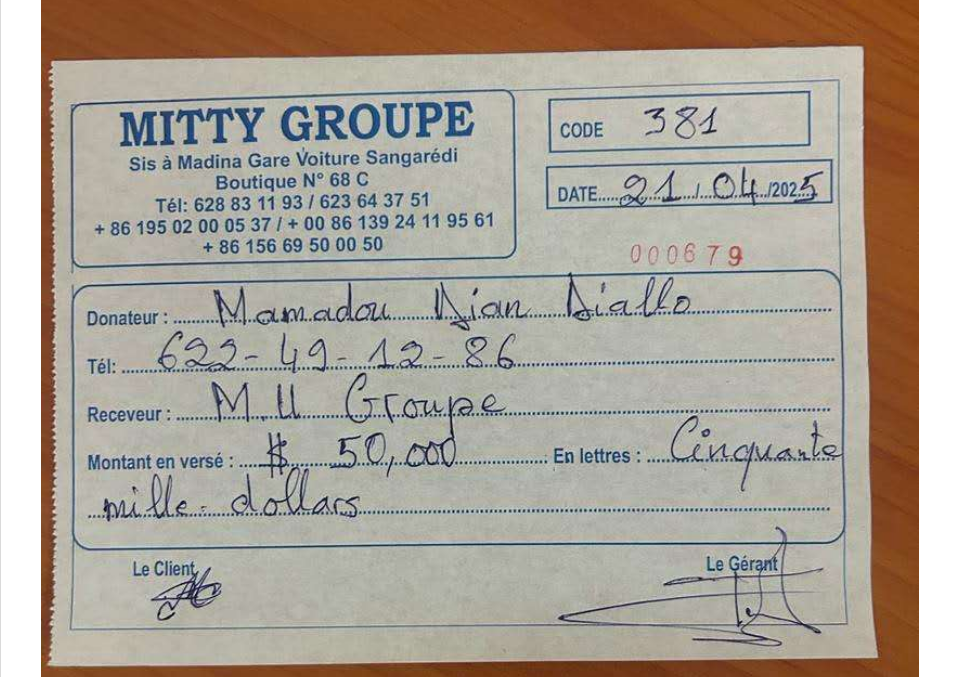 MITTY GROUPE
Sis à Madina Gare Voiture Sangarédi
Boutique N° 68 C
Tél: 628 83 11 93 / 623 64 37 51
+ 86 195 02 00 05 37 / + 00 86 139 24 11 95 61
+ 86 156 69 50 00 50
CODE 381
DATE 21/04/2025
000679
Donateur : Mamadou Dian Diallo
Tél: 622-49-12-86
Receveur : M.U Groupe
Montant en versé : $ 50,000 En lettres : Cinquante
mille - dollars
Le Client Le Gérant